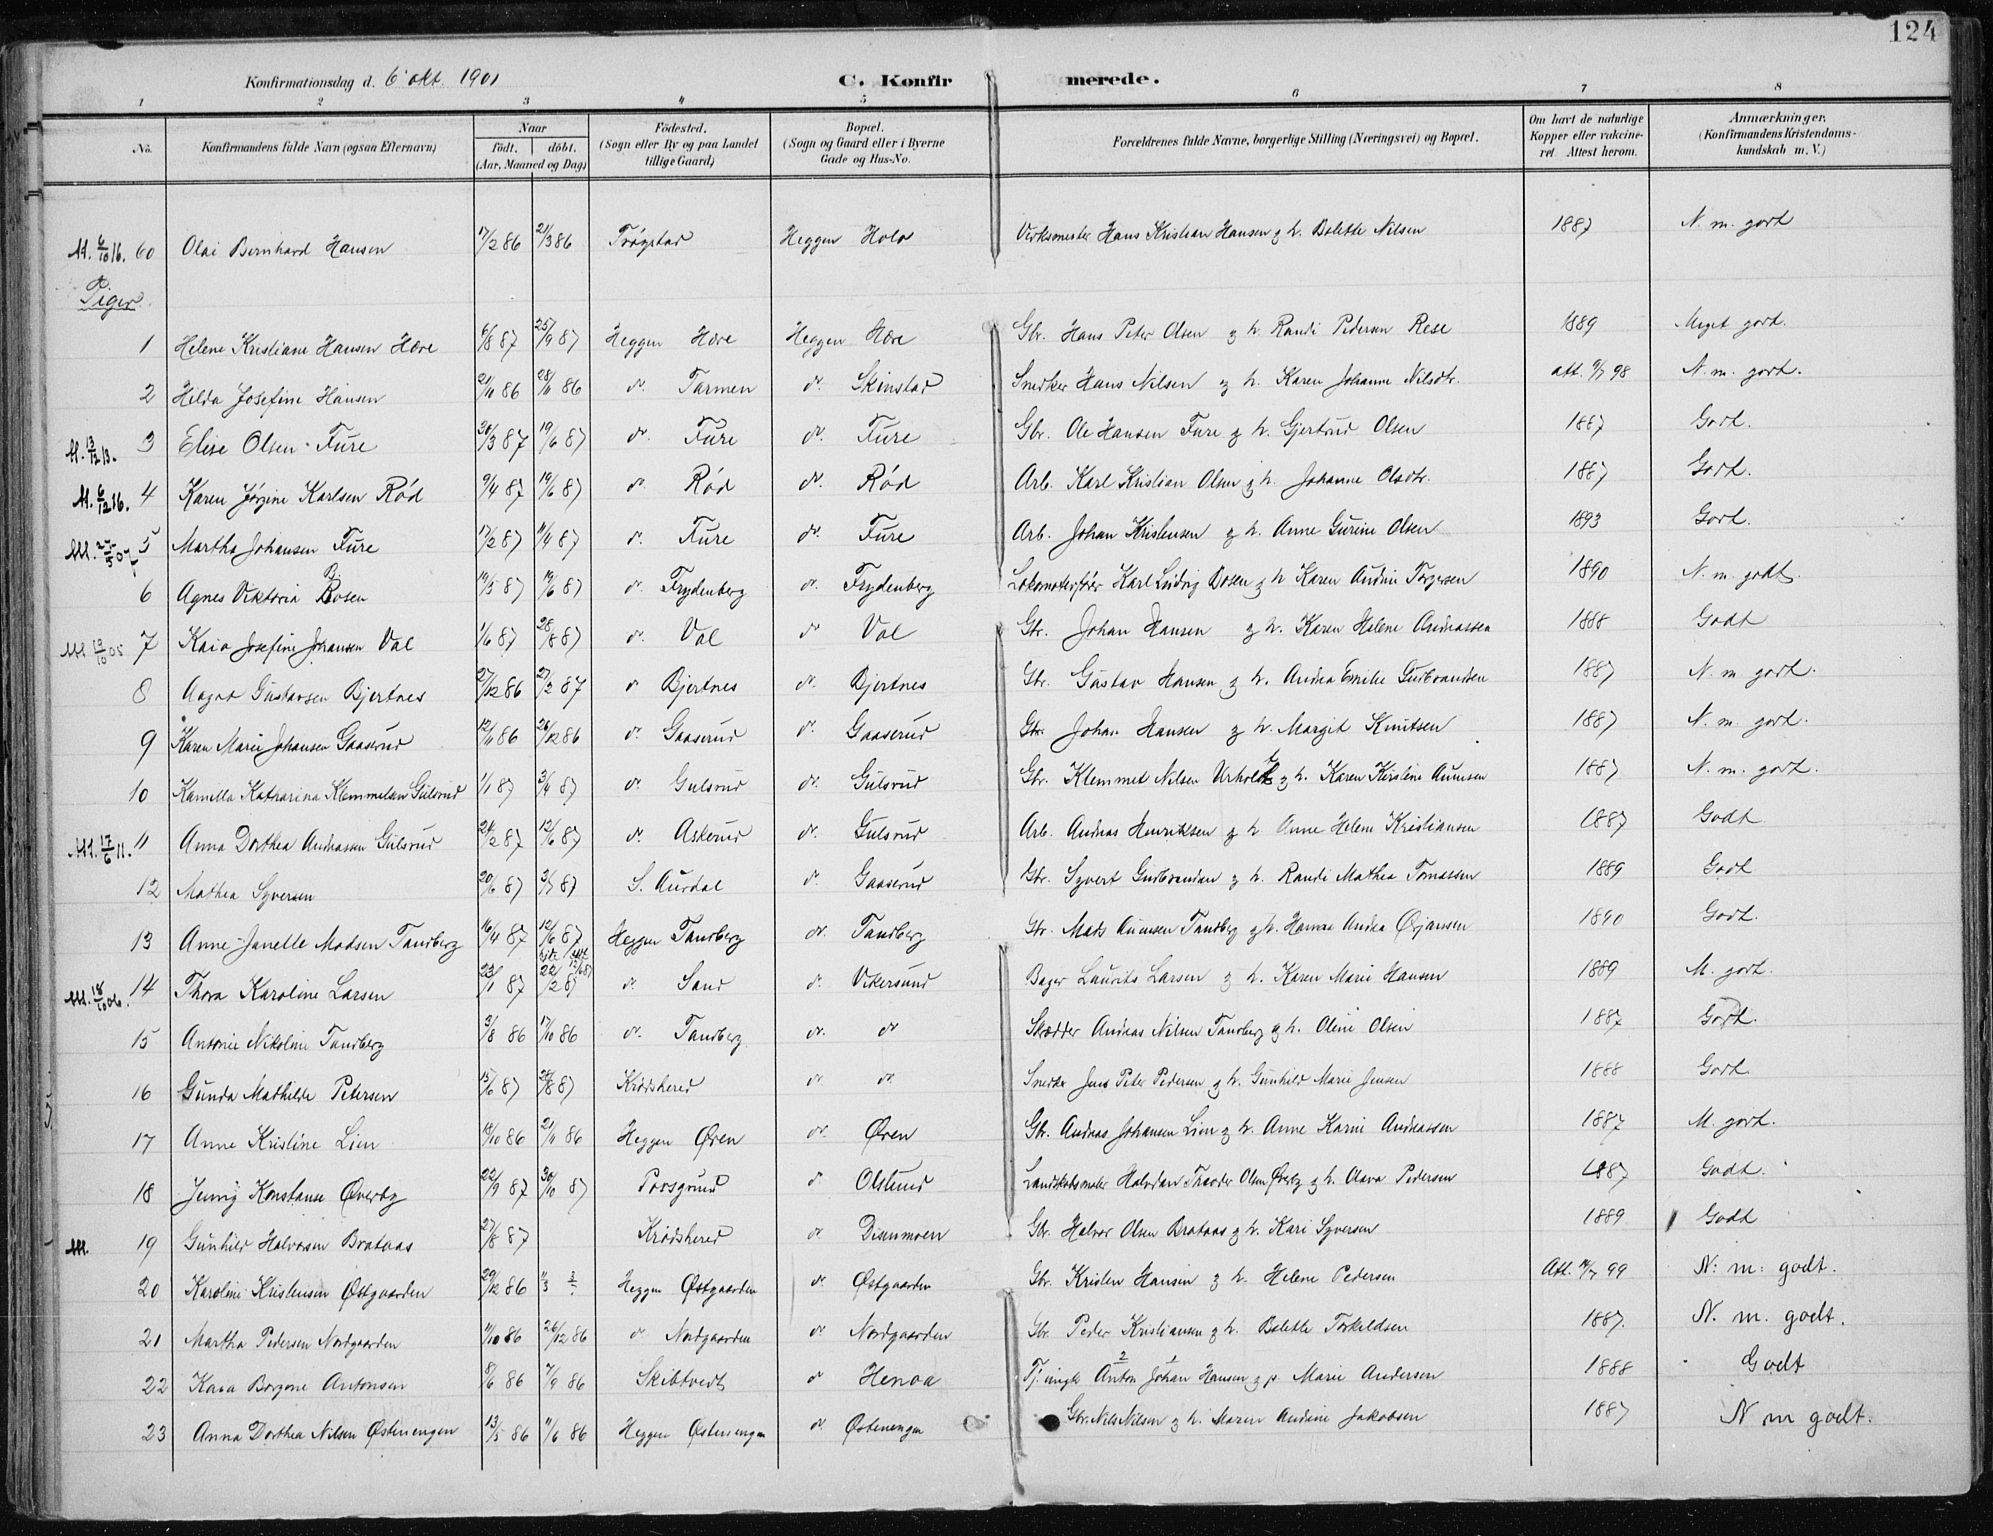 124
Konfirmationsdag d. 6 okt. 1901 C. Konfirmerede.
1 2 3 4 5 6 7 8
No. Konfirmandens fulde Navn (ogsaa Efternavn) Naar födt. döbt. (Aar, Maaned og Dag) Födested. (Sogn eller By og paa Landet tillige Gaard) Bopæl. (Sogn og Gaard eller i Byerne Gade og Hus-No. Forældrenes fulde Navne, borgerlige Stilling (Næringsvei) og Bopæl. Om havt de naturlige Kopper eller vakcineret Attest herom. Anmærkninger. (Konfirmandens Kristendomskundskab m. V.)
M. 6/10 16. 60 Olai Bernhard Hansen 17/2 86 21/3 86 Trøgstad Heggen Hole Hans Kristian Hansen og h. Bolette Nilsen 1887 N. m. godt
Piger
1 Helene Kristiane Hansen Hære 6/8 87 25/9 87 Heggen Hære Heggen Hære Gbr. Hans Peter Olsen og h. Randi Pedersen Rese 1889 Meget godt.
2 Hilda Josefine Hansen 21/10 86 28/11 86 do. Tarmen do. Skinstad Snedker Hans Nilsen og h. Karen Johanne Nilsdtr. att. 98 N. m. godt.
M. 13/12 13. 3 Elise Olsen Fure 30/3 87 19/6 87 do. Fure do. Fure Gbr. Ole Hansen Fure og h. Gjertrud Olsen 1887 Godt.
M. 6/12 16. 4 Karen Jørgine Karlsen Rød 9/4 87 19/6 87 do. Rød do. Rød Arb. Karl Kristian Olsen og h. Johanne Olsdtr. 1887 Godt.
M. 25/5 07. 5 Martha Johansen Fure 17/2 87 11/4 87 do. Fure do. Fure Arb. Johan Kristensen og h. Anne Gurine Olsen 1893 Godt.
6 Agnes Viktoria Bosen 19/5 87 19/6 87 do. Frydenberg do. Frydenberg Lokomotivfører Karl Ludvig Bosen og h. Karen Andine Torgersen 1890 N. m. godt.
M 10 05 7 Kaia Josefine Johansen Val 1/6 87 28/8 87 do. Val do Val Gbr. Johan Hansen og h. Karen Helene Andreassen 1888 Godt
8 Aagot Gustavsen Bjertnes 27/12 86 27/2 87 do Bjertnes do. Bjertnes Gbr. Gustav Hansen og h. Andrea Emilie Gudbrandsen 1887 N. m godt.
9 Karen Marie Johansen Gaaserud 12/11 86 26/12 86 do. Gaaserud do. Gaaserud Gbr. Johan Hansen og h. Margit Knutsen 1887 N. m. godt.
10 Kamilla Katharina Klemmetsen Gulsrud 1/1 87 3/4 87 do. Gulsrud do. Gulsrud Gbr. Klemmet Nilsen og h. Karen Kirstine Aumsen 1887 N. m. godt.
M. 17/6 11. 11 Anna Dorthea Andreassen Gulsrud 24/2 87 12/6 87 do. Askerud do. Gulsrud Arb. Andreas Henriksen og h Anne Helene Kristiansen 1887 Godt
12 Mathea Syversen 20/6 87 3/7 87 S. Aurdal do. Gaaserud Gbr. Syvert Gudbrandsen og h. Randi Mathea Tomassen 1889 Godt
13 Anne Janette Madsen Tandberg 16/4 87 12/6 87 Heggen Tandberg do. Tandberg Gbr. Mads Aumsen Tandberg og h. Hanna Andrea Ørjansen 1890 Godt.
M. 18/10 06. 14 Thora Karoline Larsen 23/1 87 22/2 87 do. Sand do. Vikersund Bager Laurits Larsen og h. Karen Marie Hansen 1889 M. godt.
15 Antonie Nikoline Tandberg 3/8 86 17/10 86 do. Tandberg do. do Skrædder Andreas Nilsen Tandberg og h. Oline Olsen 1887 Godt.
16 Gunda Mathilde Petersen 15/6 87 28/8 87 Krødsherred do. do. Snedker Jens Peter Pedersen og h. Gunhild Marie Jensen 1888 Godt.
17 Anne Kristine Lien 19/10 86 21/11 86 Heggen Øren do. Øren Gbr. Andreas Johansen Lien og h. Anne Karine Andreassen 1887 M. godt.
18 Jenny Konstanse Øverby 22/9 87 30/10 87 Porsgrund do Olslund Halvdan Theodor Olsen Øverby og h. Olava Pedersen 1887 Godt.
M. 19 Gunhild Halvorsen Brataas 27/8 87 Krødsherred do Disenmoen Gbr. Halvor Olsen Brataas og h. Kari Syversen 1889 Godt
20 Karoline Kristensen Østgaarden 29/12 86 Heggen Østgaarden do. Østgaarden Gbr. Kristen Hansen og h. Helene Pedersen Att. 99 N. m. godt.
21 Martha Pedersen Nordgaarden 11/10 86 26/12 86 do Nordgaarden do Nordgaarden Gbr. Peder Kristiansen og h. Bolette Torkildsen 1887. N. m. godt.
22 Kaia Borgine Antonsen 8/6 86 7/9 86 Skibtvedt do Henoa Anton Johan Hansen og p. Marie Andersen 1888 Godt
23 Anna Dorthea Nilsen Østenengen 13/5 86 11/6 86 Heggen Østenengen do. Østenengen Gbr. Nils Nilsen og h. Maren Andine Jakobsen 1887 N m godt.